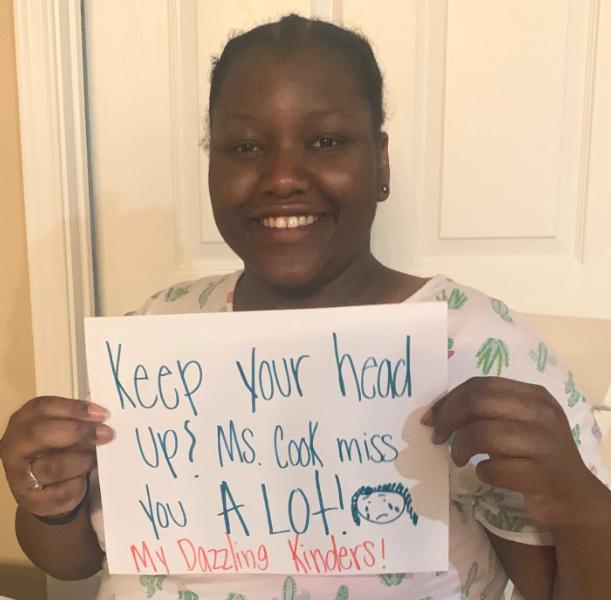 Keep your head
up! Ms. Cook miss
you A LOt!
My Dazzling Kinders!